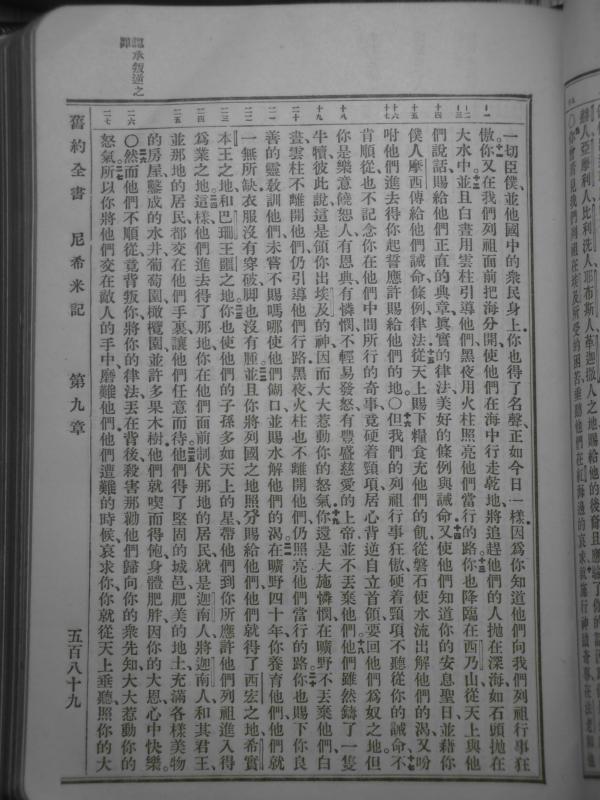 一切臣僕並他國中的衆民身上你也得了名聲正如今日一樣因爲你知道他們向我們列祖行事狂
傲你又在我們列祖面前把海分開使他們在海中行走乾地將追趕他們的人抛在深海如石頭抛在
大水中並且白晝用雲柱引導他們黑夜用火柱照亮他們當行的路你也降臨在西乃山從天上與他
們說話賜給他們正直的典章眞實的律法美好的條例與誡命又使他們知道你的安息聖日並藉你
僕人摩西傳給他們誡命條例律法從天上賜下糧食充他們的飢從磐石使水流出解他們的渴又吩
咐他們進去得你起誓應許賜給他們的地〇但我們的列祖行事狂傲硬着頸項不聽從你的誡命不
肯順從也不記念你在他們中間所行的奇事竟硬着頸項居心背逆自立首領要回他們爲奴之地但
你是樂意饒恕人有恩典有憐憫不輕易發怒有豐盛慈愛的上帝並不丟棄他們他們雖然鑄了一隻
牛犢彼此說這是領你出埃及的神因而大大惹動你的怒氣你還是大施憐憫在曠野不丟棄他們白
晝雲柱不離開他們仍引導他們行路黑夜火柱也不離開他們仍照亮他們當行的路你也賜下你良
善的靈敎訓他們未嘗不賜嗎哪使他們餬口並賜水解他們的渴在曠野四十年你養育他們他們就
一無所缺衣服沒有穿破脚也沒有腫並且你將列國之地照分賜給他們他們就得了西宏之地希實
本王之地和巴珊王噩之地你也使他們的子孫多如天上的星帶他們到你所應許他們列祖進入得
爲業之地這樣他們進去得了那地你在他們面前制伏那地的居民就是迦南人將迦南人和其君王
並那地的居民都交在他們手裏讓他們任意而待他們得了堅固的城邑肥美的地土充滿各樣美物
的房屋鑿成的水井葡萄園橄欖園並許多果木樹他們就喫而得飽身體肥胖因你的大恩心中快樂
〇然而他們不順從竟背叛你將你的律法丟在背後殺害那勸他們歸向你的衆先知大大惹動你的
怒氣所以你將他們交在敵人的手中磨難他們他們遭難的時候哀求你你就從天上垂聽照你的大
舊約全書 尼希米記 第九章 五百八十九